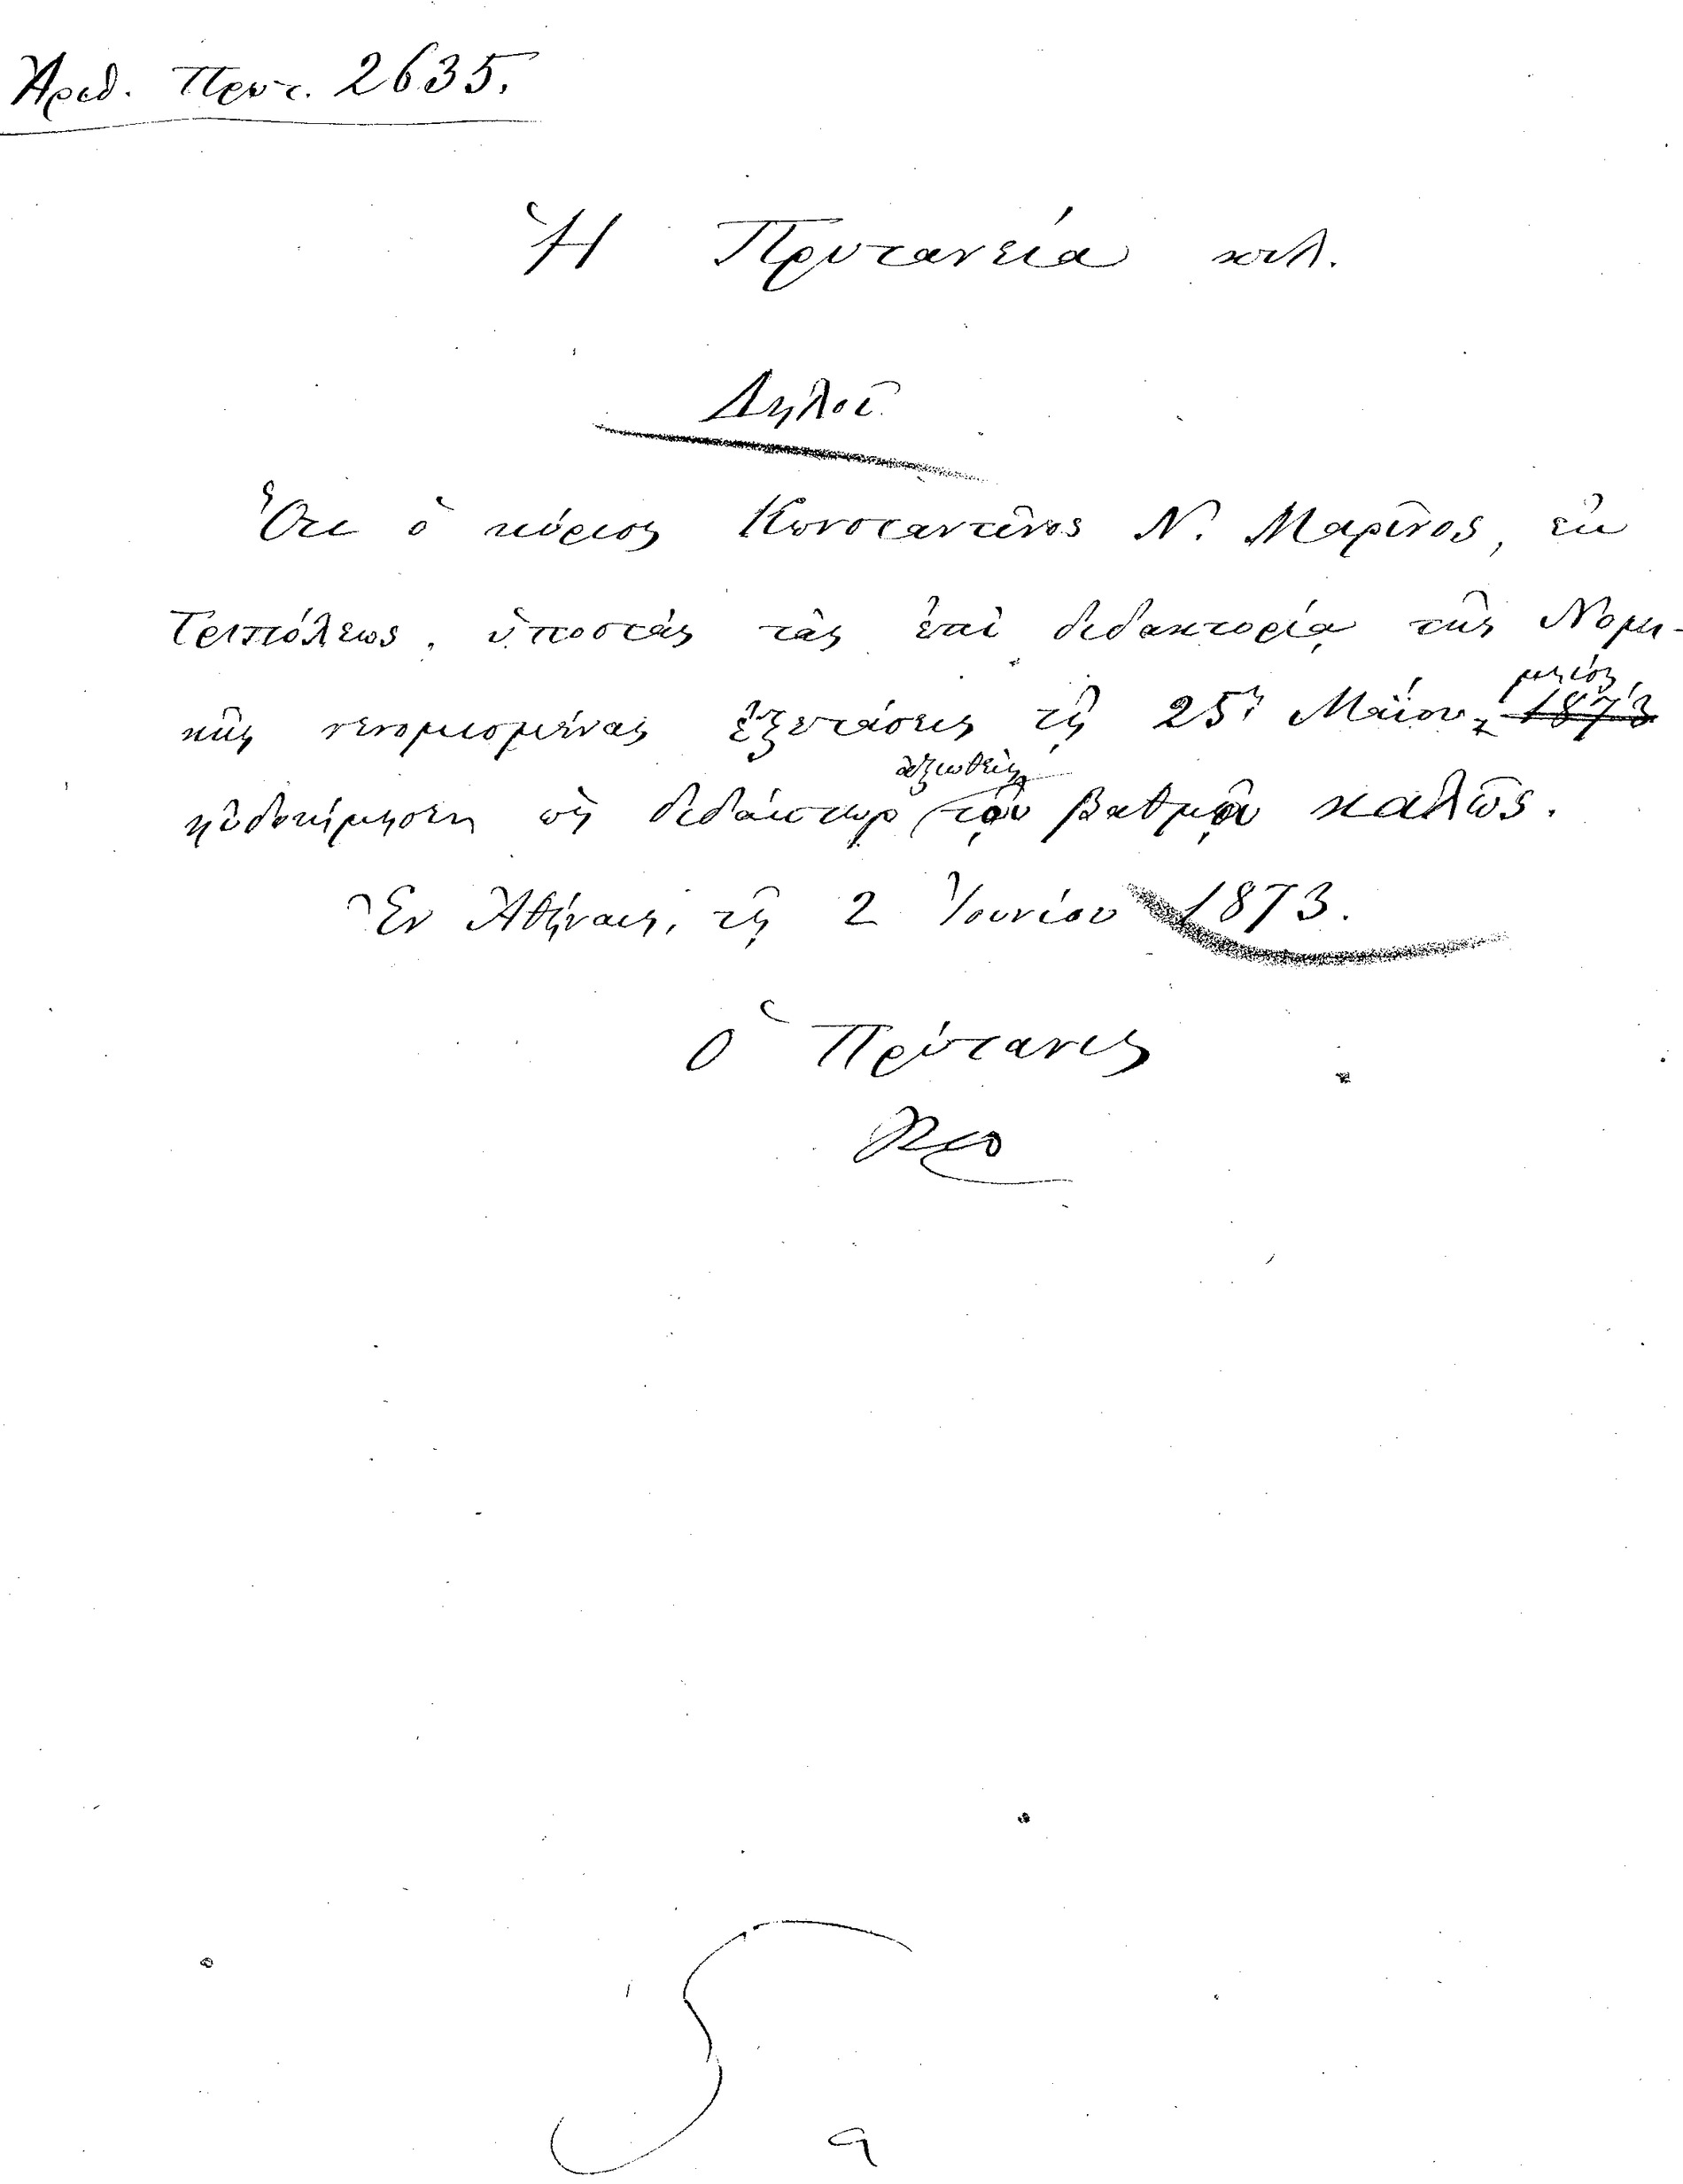 Ἀριθ. Πρωτ. 2635.
Ἡ Πρυτανεία κτλ.
Δηλοῖ
Ὅτι ὁ κύριος Κωνσταντῖνος Ν. Μαρῖνος, ἐκ
Τριπόλεως, ὑποστὰς τὰς ἐπὶ διδακτορίᾳ τῆς Νομι-
κῆς νενομισμένας ἐξετάσεις τῇ 25ῃ Μαΐου 1873
ηὐδοκίμησεν ὡς διδάκτωρ ἀξιωθεὶς τοῦ βαθμοῦ καλῶς.
Ἐν Ἀθήναις, τῇ 2 Ἰουνίου 1873.
Ὁ Πρύτανις